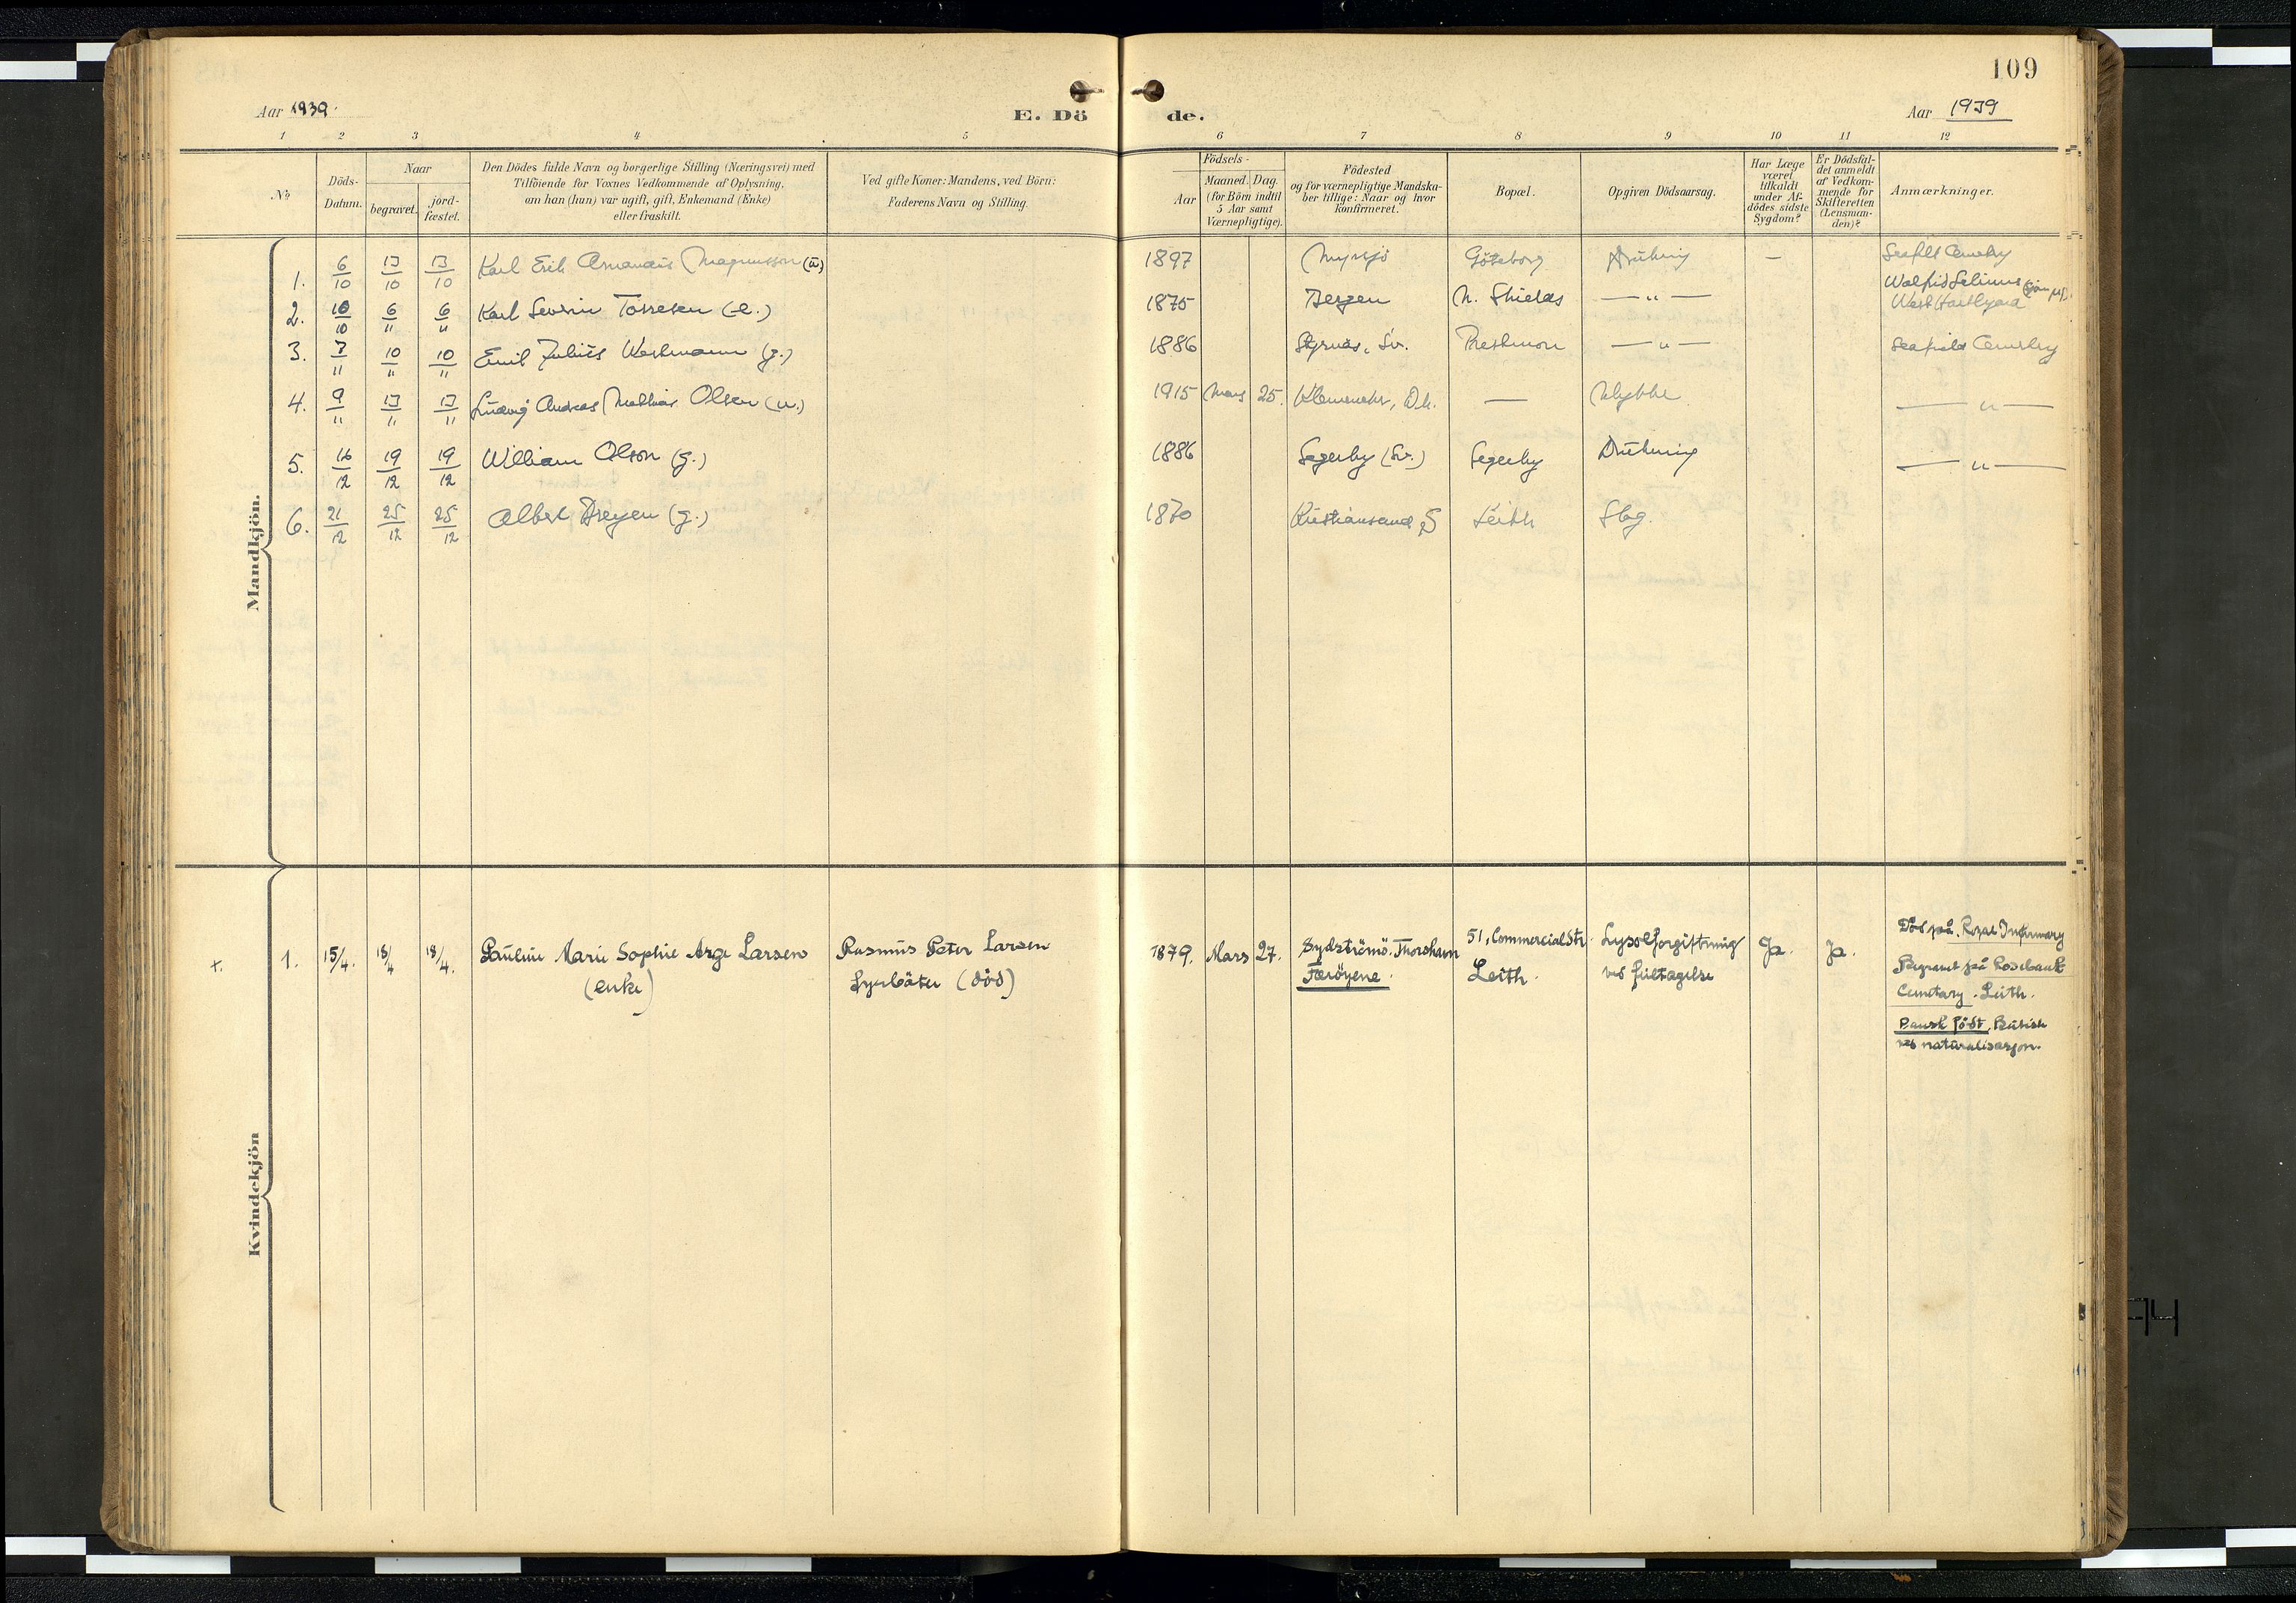 109
Aar 1939.
E. Dö
de.
Aar 1939
1 2 3 4 5 6 7 8 9 10 11 12
No
Döds-
Datum.
Naar
begravet.
jord-
fæstet.
Den Dödes fulde Navn og borgerlige Stilling (Næringsvei) med
Tilföiende for Voxnes Vedkommende af Oplysning,
om han (hun) var ugift, gift, Enkemand (Enke)
eller fraskilt.
Ved gifte Koner: Mandens, ved Börn:
Faderens Navn og Stilling.
Födsels-
Aar
Maaned. Dag.
(for Börn indtil
5 Aar samt
Værnepligtige).
Födested
og for værnepligtige Mandska-
ber tillige: Naar og hvor
konfirmeret.
Bopæl.
Opgiven Dödsaarsag.
Har Læge
været
tilkaldt
under Af-
dödes sidste
Sygdom?
Er Dödsfal-
det anmeldt
af Vedkom-
mende for
Skifteretten
(Lensman-
den)?
Anmærkninger.
Mandkjön.
1. 6/10 13/10 13/10 Karl Erik Amandus Magnusson (u) 1897 Myrsjö Göteborg Drukning —
2. 10/10 6/11 6/11 Karl Severin Torresen (e.) 1875 Bergen N. Shields — " —
3. 7/11 10/11 10/11 Emil Julius Westmann (g.) 1886 Styrnäs, Sv. Prestmon — " — Seafield Cemetry
4. 9/11 13/11 13/11 Ludvig Andreas Mathias Olsen (u.) 1915 Mars 25. — Ulykke — " —
5. 16/12 19/12 19/12 William Olson (g.) 1886 Segerby (Sv.) Segerby Drukning — " —
6. 21/12 25/12 25/12 Albert Dreyen (g.) 1870 Kristiansand S Leith Slag.
Kvindekjön
+. 1. 15/4. 18/4 18/4. Pauline Marie Sophie Arge Larsen
(enke)
Rasmus Peter Larsen
(död)
1879. Mars 27. Sydströmö. Thorshavn
Færöyene.
51, Commercial Str.
Leith.
Lysolforgiftning
ved
Ja. Ja.
Död på Royal Infirmary
Begravet på Rosebank
Cemetary. Leith.
Dansk födt, British
ved naturalisasjon.